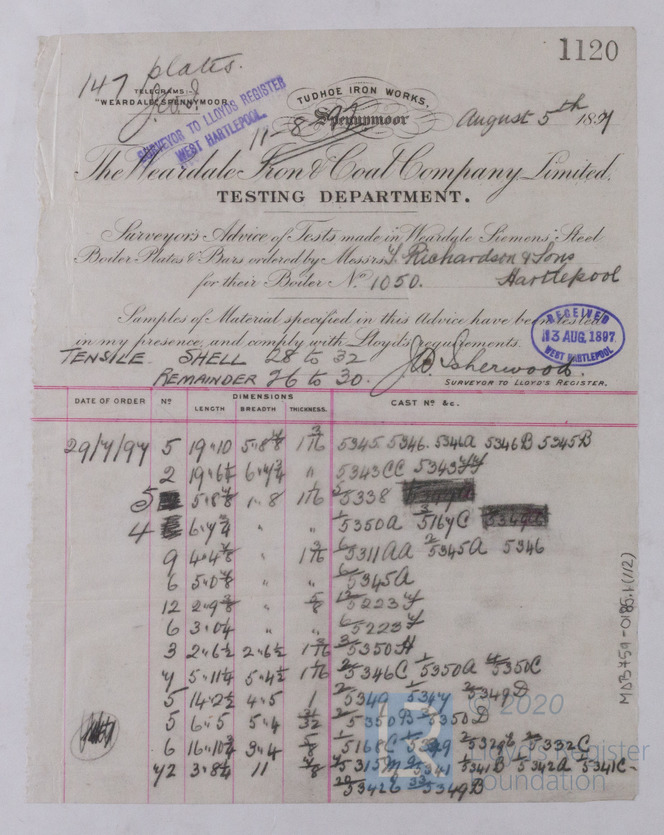 1120
147 plates.
TELEGRAMS:-
"WEARDALE, SPENNYMOOR
SURVEYOR TO LLOYDS REGISTER
WEST HARTLEPOOL.
11-8-97
TUDHOE IRON WORKS,
Spennymoor
August 5th 1897
The Weardale Iron & Coal Company, Limited,
TESTING DEPARTMENT.
Surveyor's Advice of Tests made in Weardale Siemens-Steel
Boiler Plates & Bars ordered by Messrs T. Richardson & Sons
for their Boiler No. 1050. Hartlepool
Samples of Material specified in this Advice have been tested
in my presence, and comply with Lloyd's requirements.
RECEIVED
13 AUG. 1897
WEST HARTLEPOOL
TENSILE. SHELL 28 to 32
REMAINDER 26 to 30.
Sherwood.
SURVEYOR TO LLOYD'S REGISTER.
DATE OF ORDER No. DIMENSIONS CAST No. &c.
LENGTH BREADTH THICKNESS.
29/7/97 5 19"10 1 3/16 5345 5346. 5346A 5346B 5345B
2 " 5343CC
5 1"8 5338
4 " " 5350A
9 " 5311AA 5345A 5346
6 " " 5345A
12 " 5/8 5223
6 " " 5223
3 2"6½ 2"6½ 5350H
5"4½ 5346C 5350A 5350C
5 14"2½ 4"5 1 534A 5349D
5 6"5 5"4 5350B 5350D
6 5/8 5168C 5332C
72 11 5341 5341B 5342A 5341C-
5349B
MDB759-0185.1(1/2)
© 2020
Lloyd's Register
Foundation